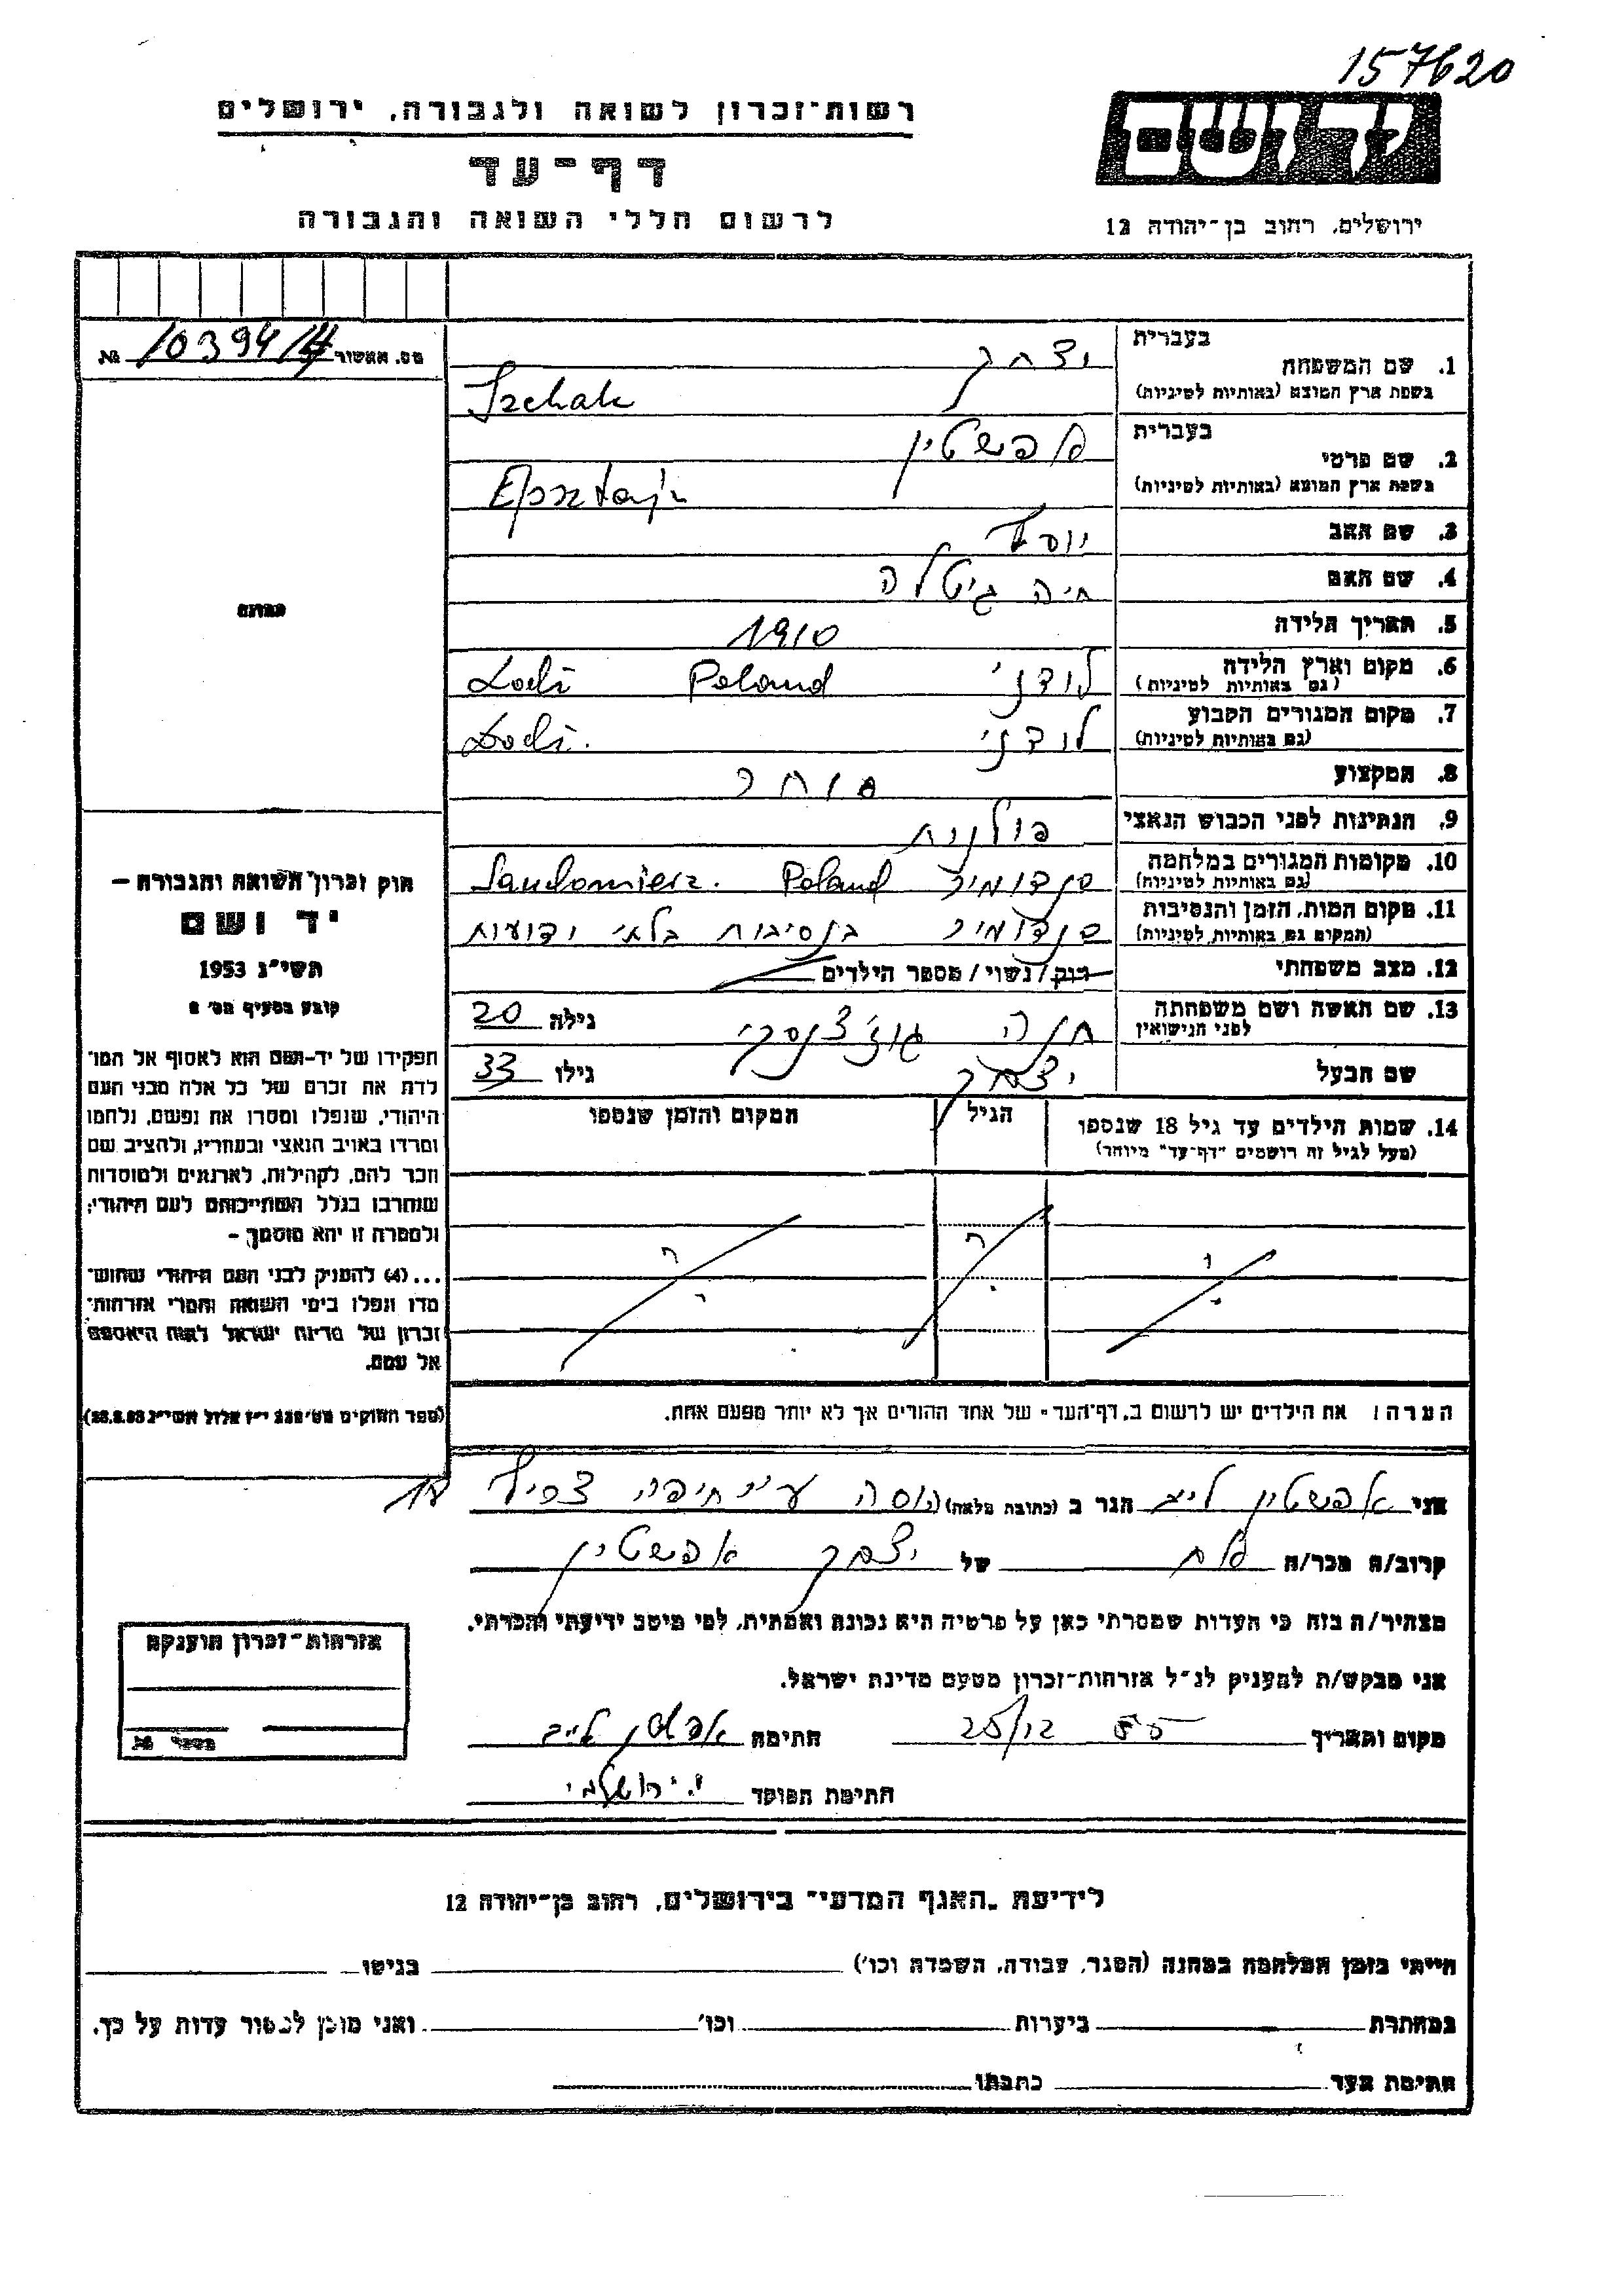 157620
רשות־זכרון לשואה ולגבורה, ירושלים
דף־עד
לרשום חללי השואה והגבורה
יד ושם
ירושלים, רחוב בן־יהודה 12
מס. אשור 10394/
№
בעברית
1. שם המשפחה יצחק
בשפת ארץ המוצא (באותיות לטיניות) Izchak
בעברית
2. שם פרטי אפשטין
בשפת ארץ המוצא (באותיות לטיניות) Epsztajn
3. שם האב יוסף
4. שם האם חיה גיטלה
5. תאריך הלידה 1910
6. מקום וארץ הלידה לודז' Poland Lodz
(גם באותיות לטיניות)
7. מקום המגורים הקבוע לודז' Lodz.
(גם באותיות לטיניות)
8. המקצוע סוחר
9. הנתינות לפני הכבוש הנאצי פולנית
10. מקומות המגורים במלחמה סנדומיר Poland Sandomierz.
(גם באותיות לטיניות)
11. מקום המות, הזמן והנסיבות סנדומיר בנסיבות בלתי ידועות
(המקום גם באותיות לטיניות)
12. מצב משפחתי רווק/נשוי/מספר הילדים
13. שם האשה ושם משפחתה חנה גילה 20
לפני הנישואין
שם הבעל יצחק גילו 33
14. שמות הילדים עד גיל 18 שנספו הגיל המקום והזמן שנספו
(מעל לגיל זה רושמים "דף־עד" מיוחד)
הערה: את הילדים יש לרשום ב"דף־העד" של אחד ההורים אך לא יותר מפעם אחת.
תמונה
חוק זכרון השואה והגבורה –
יד ושם
תשי"ג 1953
קובע בסעיף מס'
תפקידו של יד־ושם הוא לאסוף אל המו־
לדת את זכרם של כל אלה מבני העם
היהודי, שנפלו ומסרו את נפשם, נלחמו
ומרדו באויב הנאצי ובעוזריו, ולהציב שם
וזכר להם, לקהילות, לארגונים ולמוסדות
שנחרבו בגלל השתייכותם לעם היהודי;
ולמטרה זו יהא מוסמך –
...(4) להעניק לבני העם היהודי שהוש־
מדו ונפלו בימי השואה והמרי אזרחות־
זכרון של מדינת ישראל לאות היאספם
אל עמם.
(ספר החוקים מס' י"ז אלול תשי"ג 28.8.53)
אני אפשטין ליב הגר ב (כתובת מלאה) הוסה ע"י חיפה
קרוב/ה מכר/ה אח של יצחק אפשטין
מצהיר/ה בזה כי העדות שמסרתי כאן על פרטיה היא נכונה ואמתית, לפי מיטב ידיעתי והכרתי.
אני מבקש/ת להעניק לנ"ל אזרחות־זכרון מטעם מדינת ישראל.
מקום ותאריך 25/12 55 חתימה אפשטין לייב
חתימת הפוקד י. ירושלמי
אזרחות־זכרון הוענקה
מספר №
לידיעת "האגף המדעי" בירושלים, רחוב בן־יהודה 12
הייתי בזמן המלחמה במחנה (הסגר, עבודה, השמדה וכו') בגיטו
במחתרת ביערות וכו' ואני מוכן למסור עדות על כך.
חתימת העד כתבתו